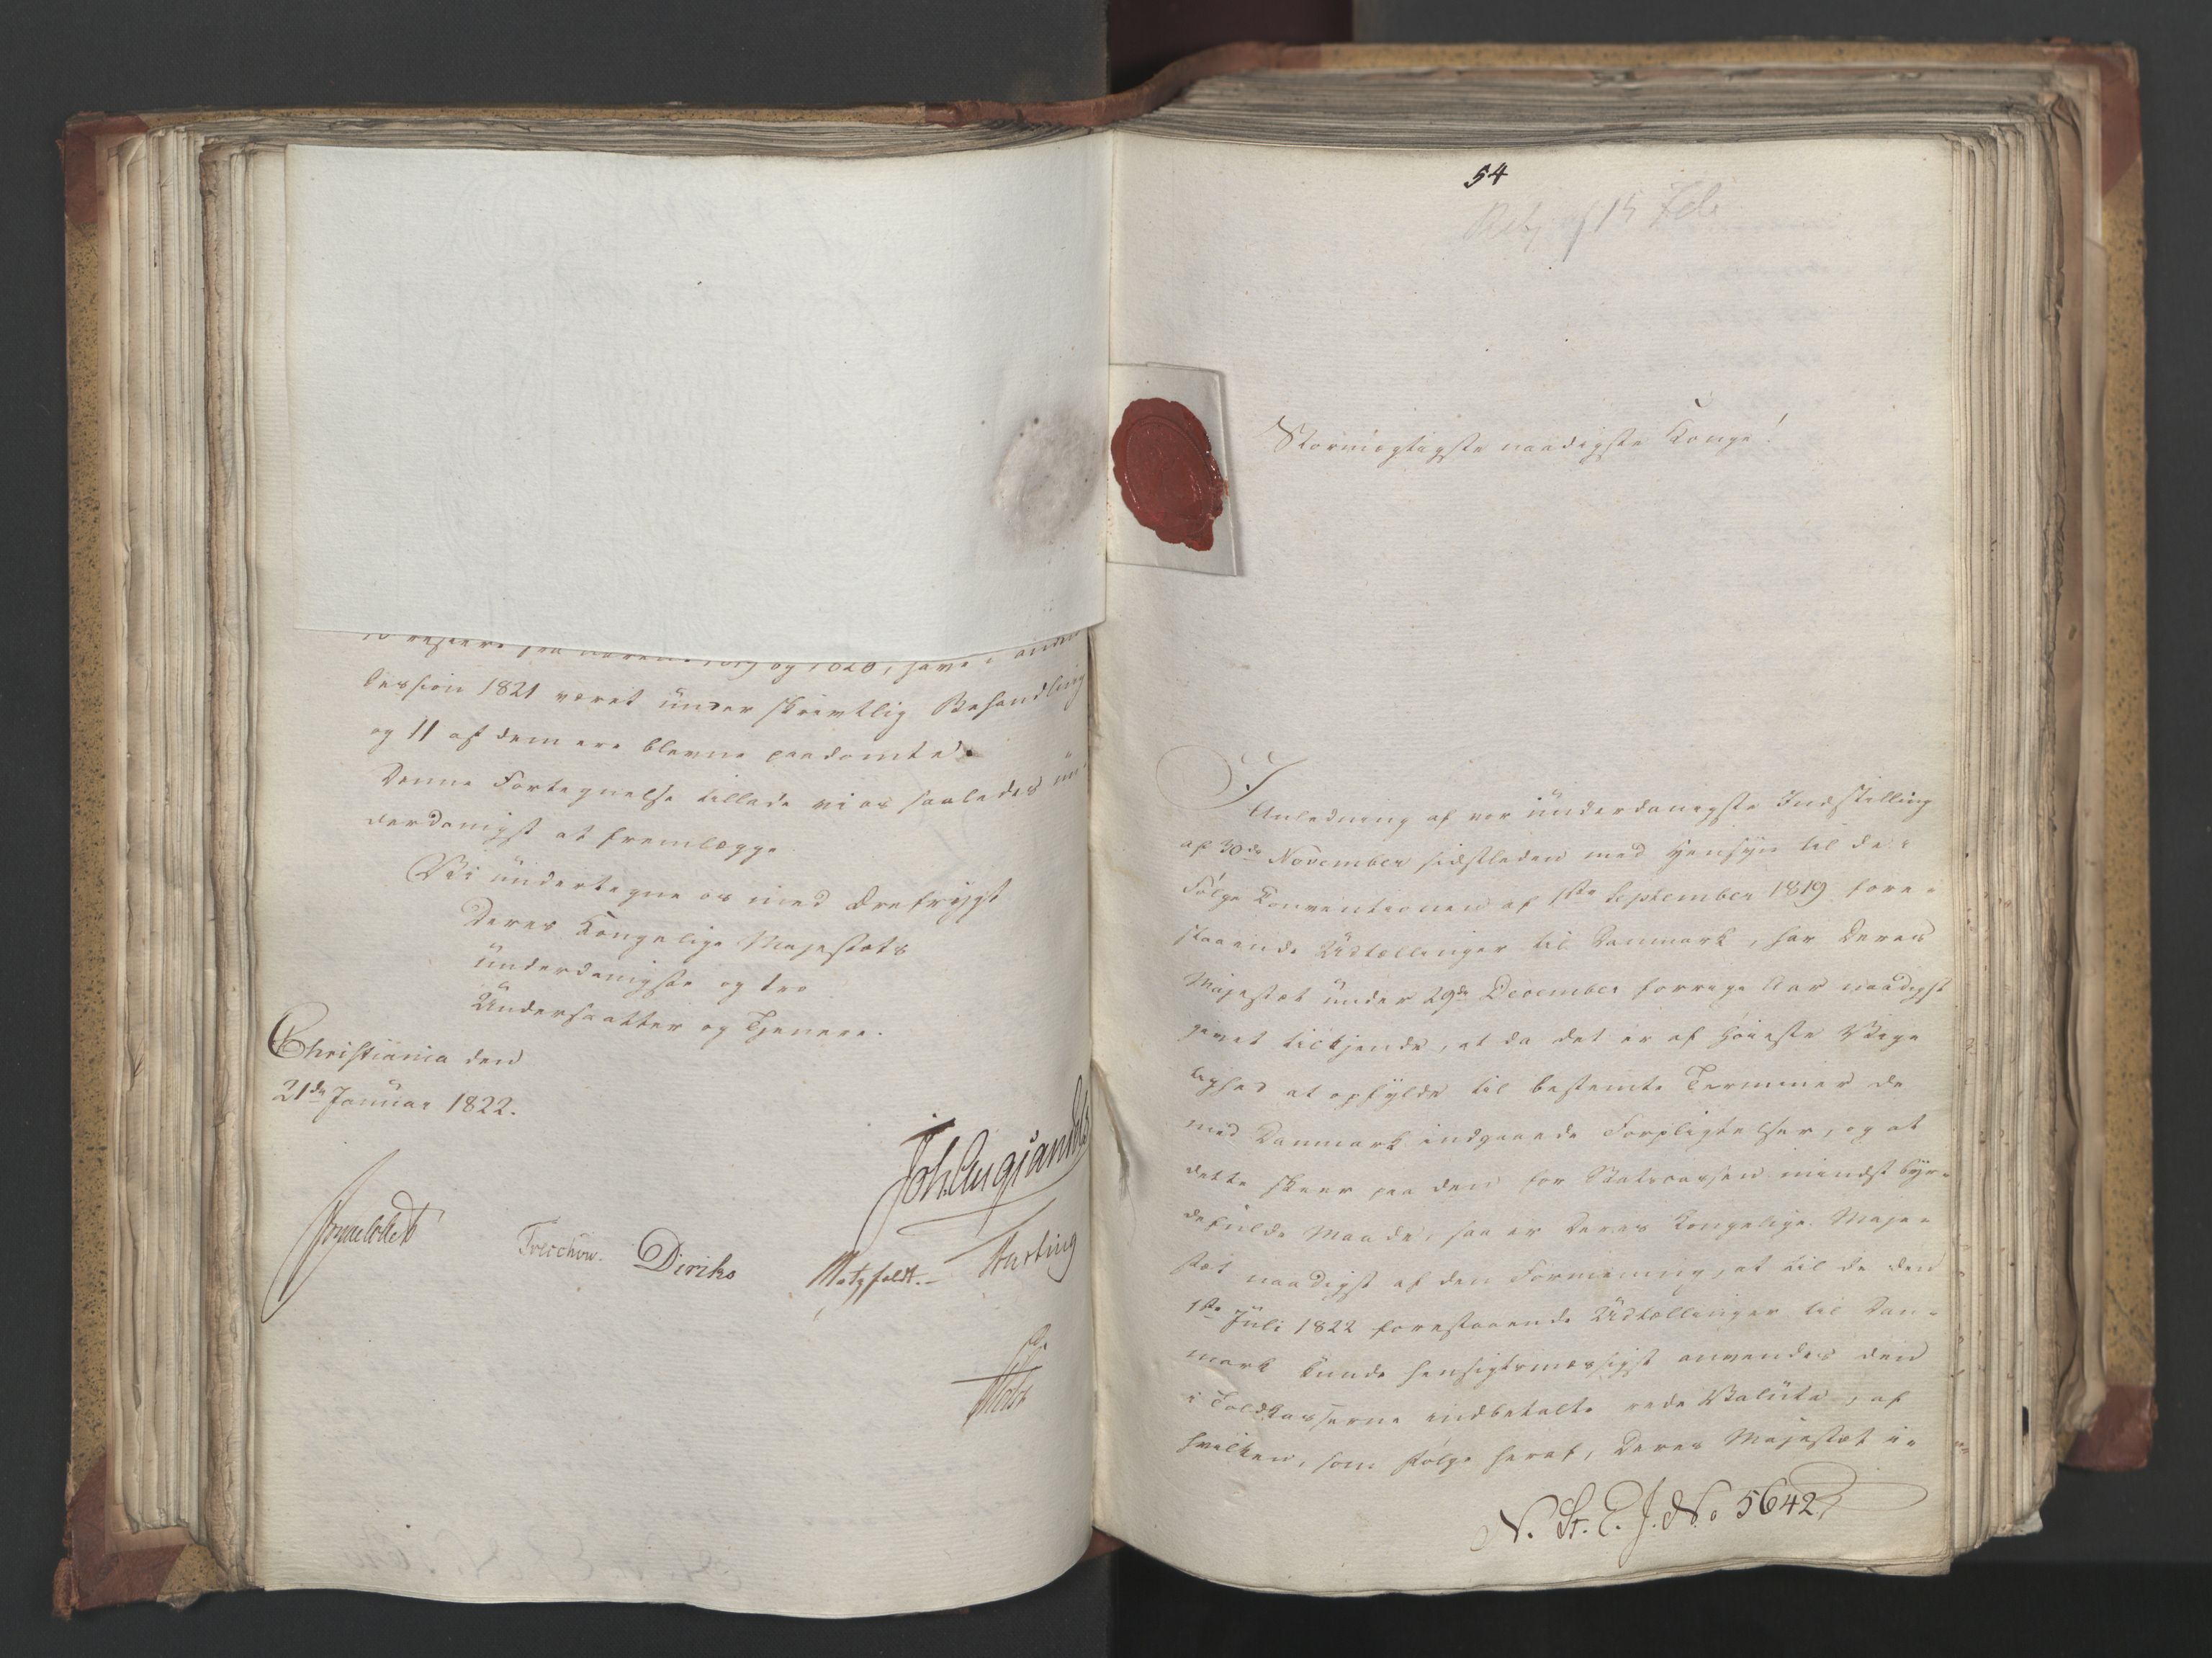 10 resterer fra Aarene 1819 og 1820, have i anden
Session 1821 været under skrivtlig Behandling
og 11 af dem ere blevne paadømte.
Denne Fortegnelse tillade vi os saaledes un-
derdanigst at fremlægge
Vi undertegne os med Ærefrygt
Deres Kongelige Majestæts
underdanigste og tro
Undersaatter og Tjenere.
Christiania den
21de Januar 1822.
Joh. Aug. Sandels
Jonas Collett
Treschow.
Diriks
Motzfeldt.
Krebs
54
af 15 Feb
Stormægtigste naadigste Konge!
I Anledning af vor underdanigste Indstilling
af 30de November sidstleden med Hensyn til de i
Følge Conventionen af 1ste September 1819 fore-
staaende Udtællinger til Danmark, har Deres
Majestæt under 29de December forrige Aar naadigst
givet tilkjende, at da det er af høieste Vig-
tighed at opfylde til bestemte Terminer de
med Danmark indgaaede Forpligtelser, og at
dette skeer paa den for Statscassen mindst byr-
defulde Maade, saa er Deres Kongelige Maje-
stæt naadigst af den Formening, at til de den
1ste Juli 1822 forestaaende Udtællinger til Dan-
mark kunde hensigtsmæssigst anvendes den
i Toldkasserne indbetalte rede Valuta, af
hvilken, som Følge heraf, Deres Majestæt i-
N. St. E. J. No 5642